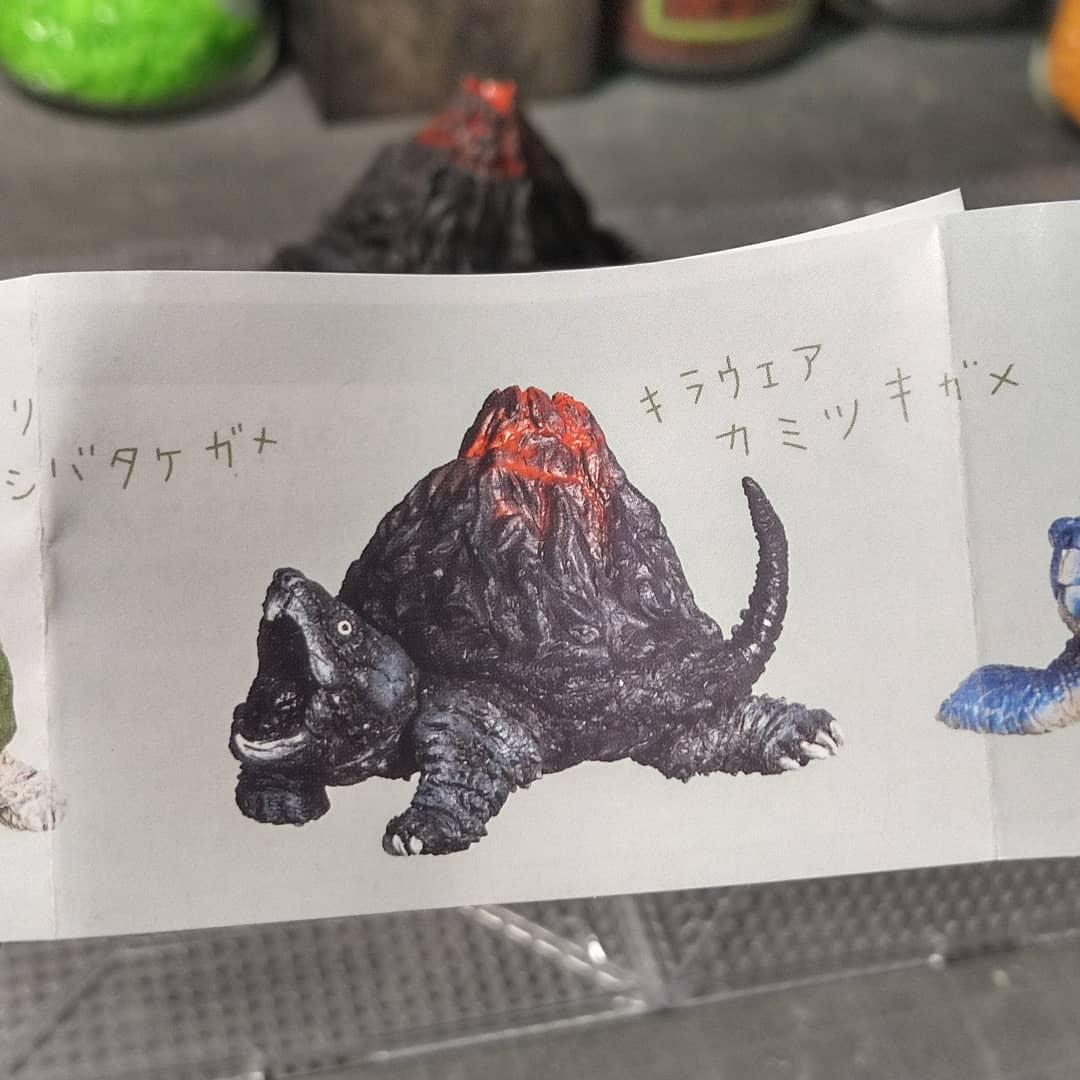 リ
シバタケガメ
キラウェア
カミツキガメ